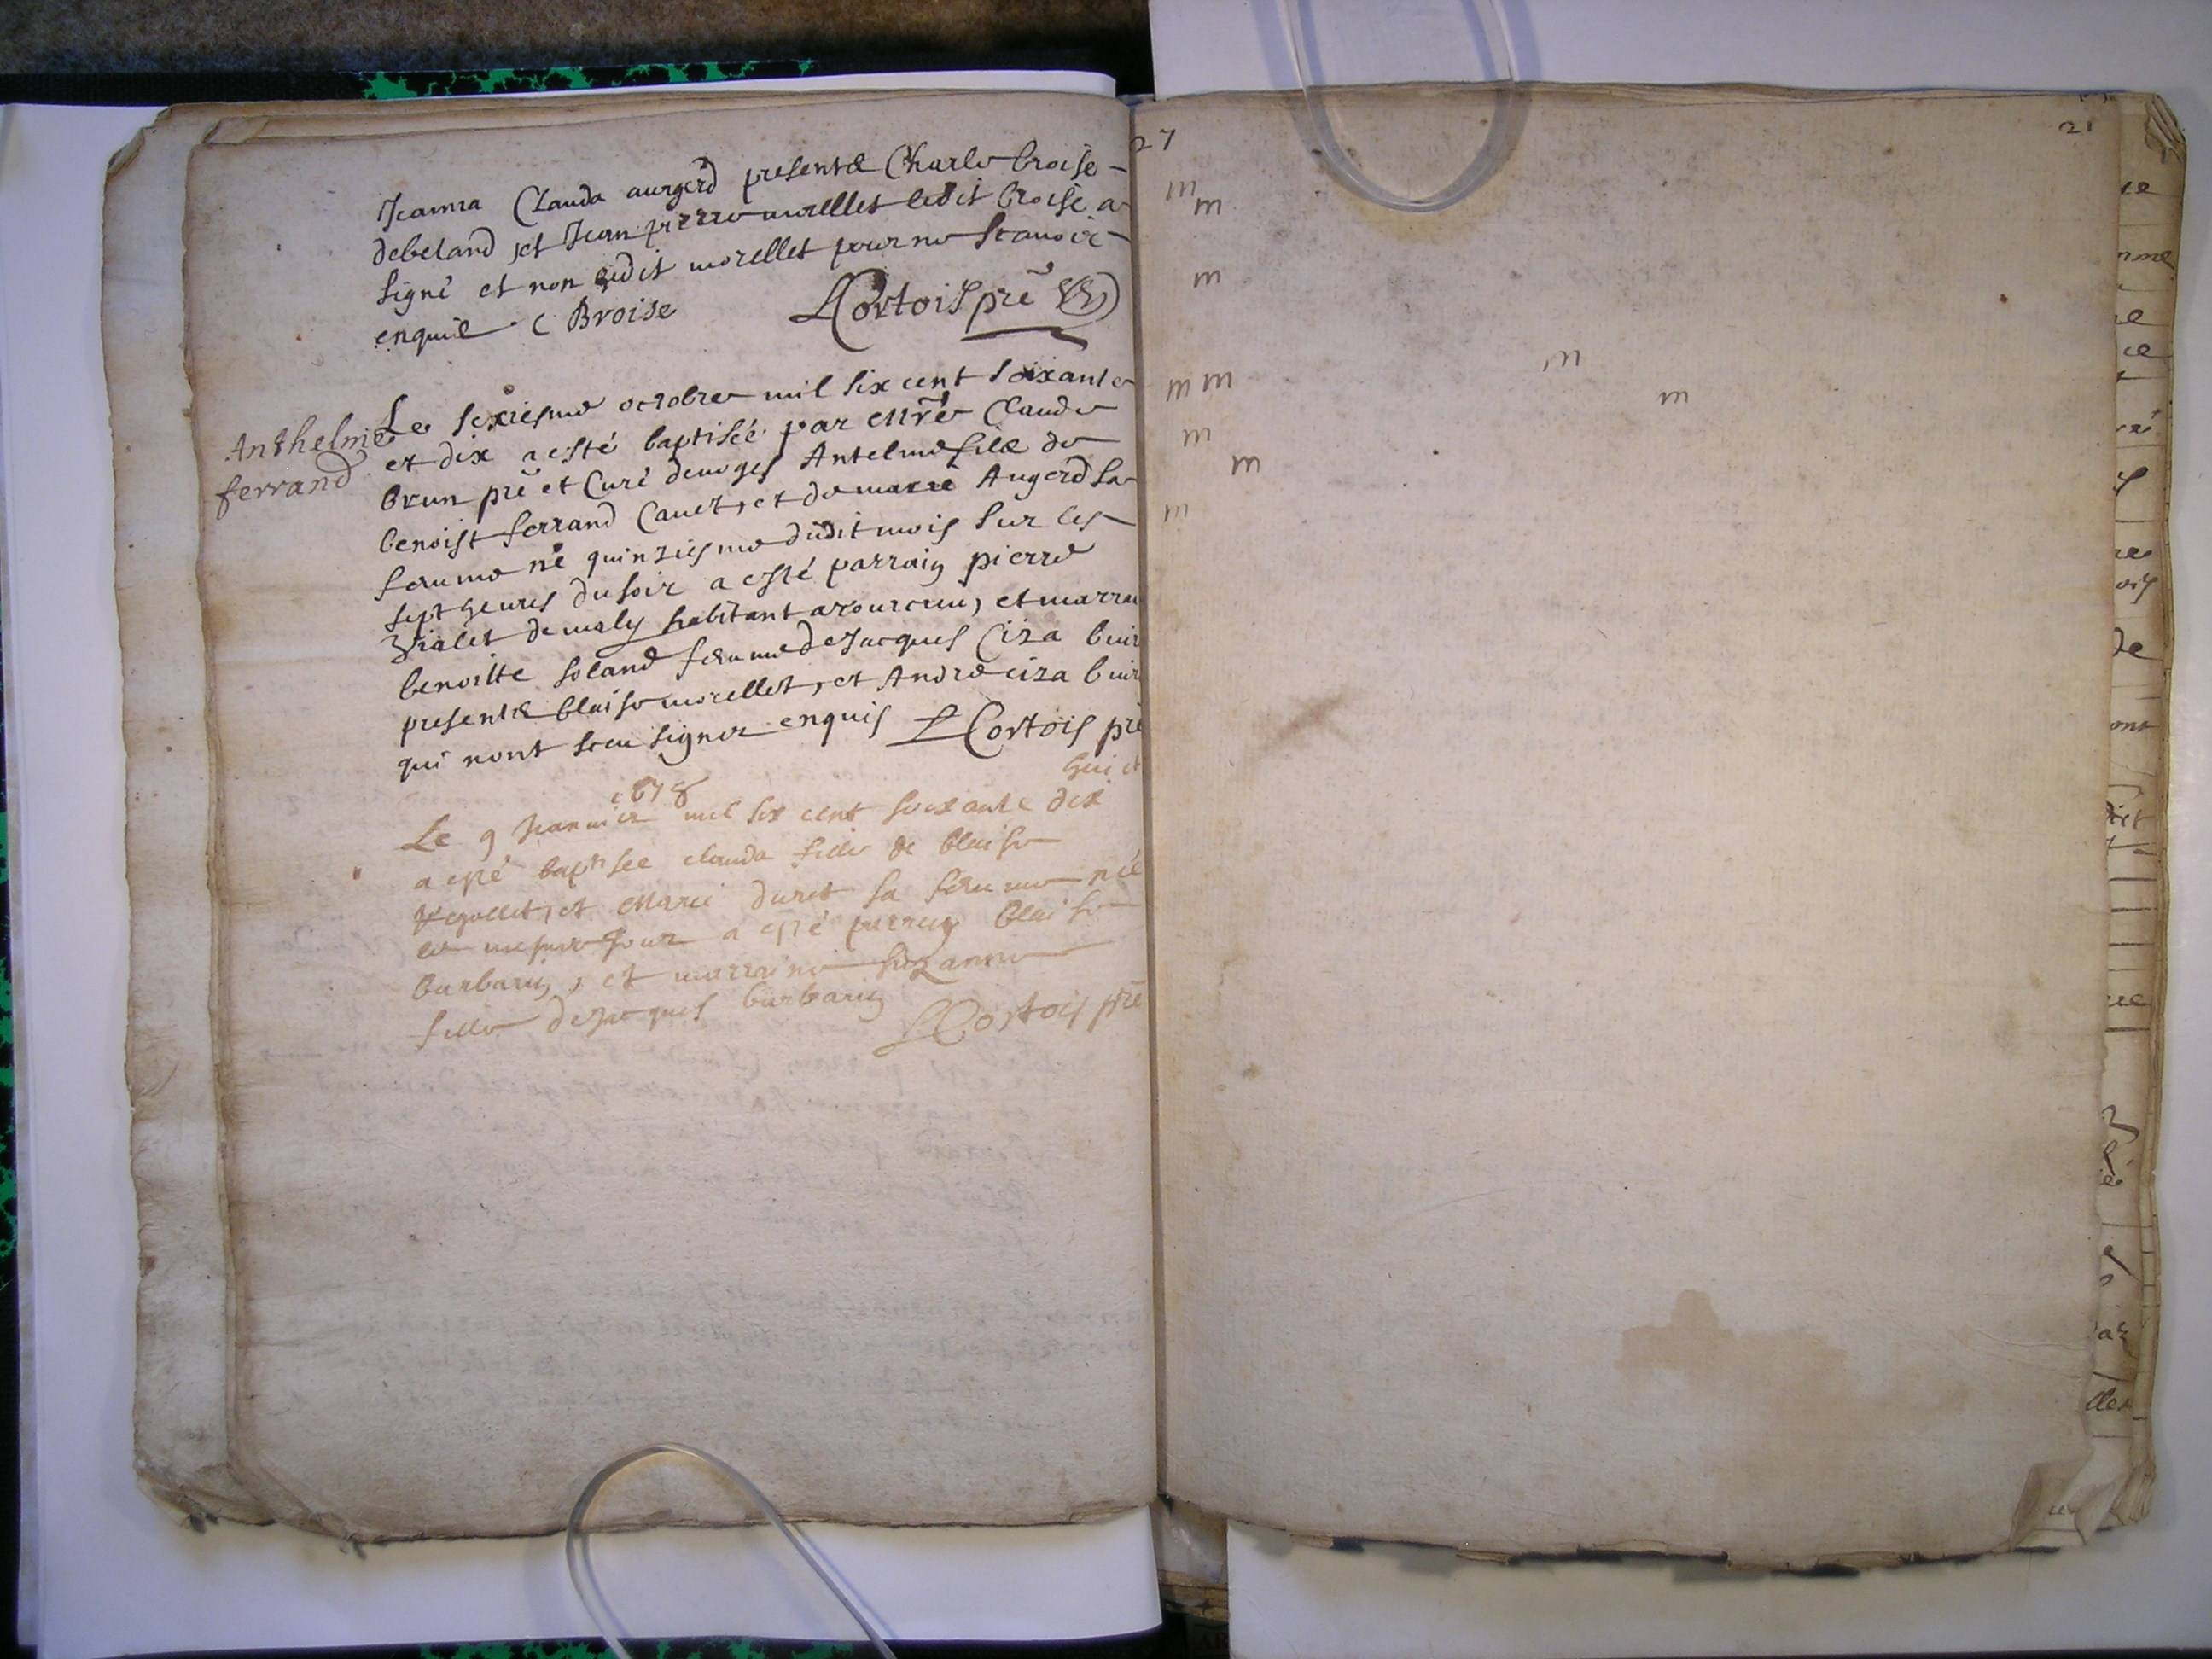 27
21
Jeanna Clauda augerd presente Charle broise
debeland et Jean pierre morellet ledit broise a
signé et non ledit morellet pour ne scauoir
enquie C Broise LCortois pre
Anthelme
ferrand
Le sexiesme octobre mil six cent soixante
et dix a esté baptisée par Mre Claude
brun pre et Curé denoges Antelme fille de
benoist ferrand Cauet, et de marie Augerd sa
femme né quinziesme dudit mois sur les
sept heures du soir a esté parrain pierre
Vialet demaly habitant a rourcieu, et marrai
benoitte soland femme de Jacques Ciza buir
presente blaise morellet, et Andre ciza buir
qui nont sceu signer enquis LCortois pre
huict
1678
Le 9 Jeanuier mil six cent soixante dix
a esté baptisee clauda fille de blaise
et Marie duret sa femme née
le mesme jour a esté parrain blaise
barbarin, et marraine suzanne
fille de Jacques barbarin LCortois pre
m
m
m
m
m
m m
m
m
m